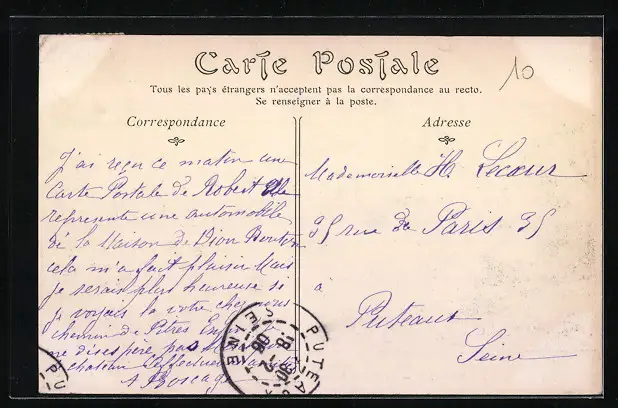 Carte Postale
10
Tous les pays étrangers n'acceptent pas la correspondance au recto.
Se renseigner à la poste.
Correspondance
J'ai reçu ce matin une
Carte Postale de Robert Elle
represente une automobile
de la Maison de Dion Bouton
cela m'a fait plaisir Mais
je serais plus heureuse si
je voyais la votre chez nous
chemin de Pitres
ne désespère pas
chateau L'effectuer
A Boscage
Adresse
Mademoiselle H. Lecœur
35 rue de Paris 35
à
Puteaux
Seine
PUTEAUX
SEINE
PU